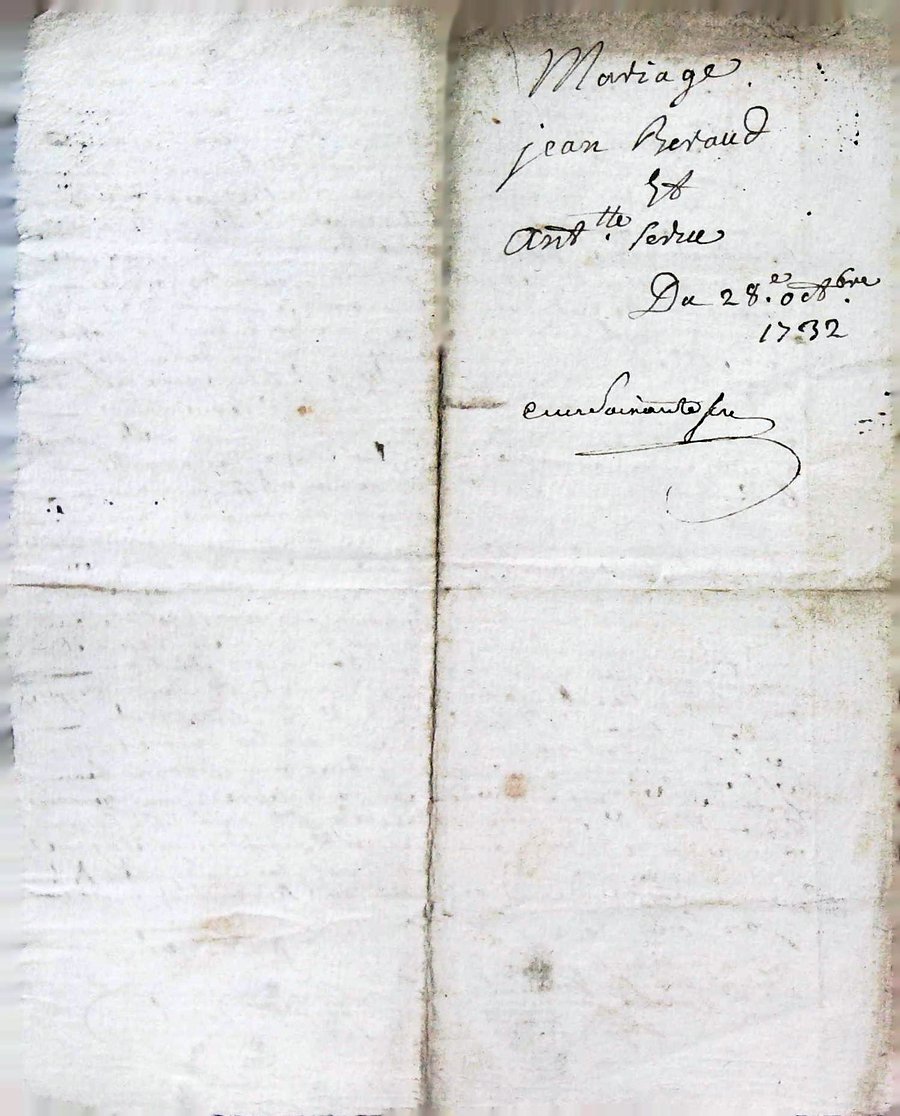 Mariage
jean Beraud
Et
Ant.tte Serue
Du 28.e oct.bre
1732